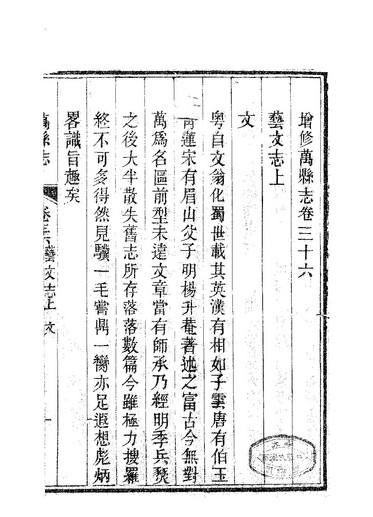 增修萬縣志卷三十六
藝文志上
文
粵自文翁化蜀世載其英漢有相如子雲唐有伯玉
青蓮宋有眉山父子明楊升菴著述之富古今無對
萬爲名區前型未遠文章當有師承乃經明季兵燹
之後大半散失舊志所存落落數篇今雖極力搜羅
終不可多得然見驥一毛嘗鼎一臠亦足遐想彪炳
畧識旨趣矣
萬縣志 卷三十六藝文志上 文 一